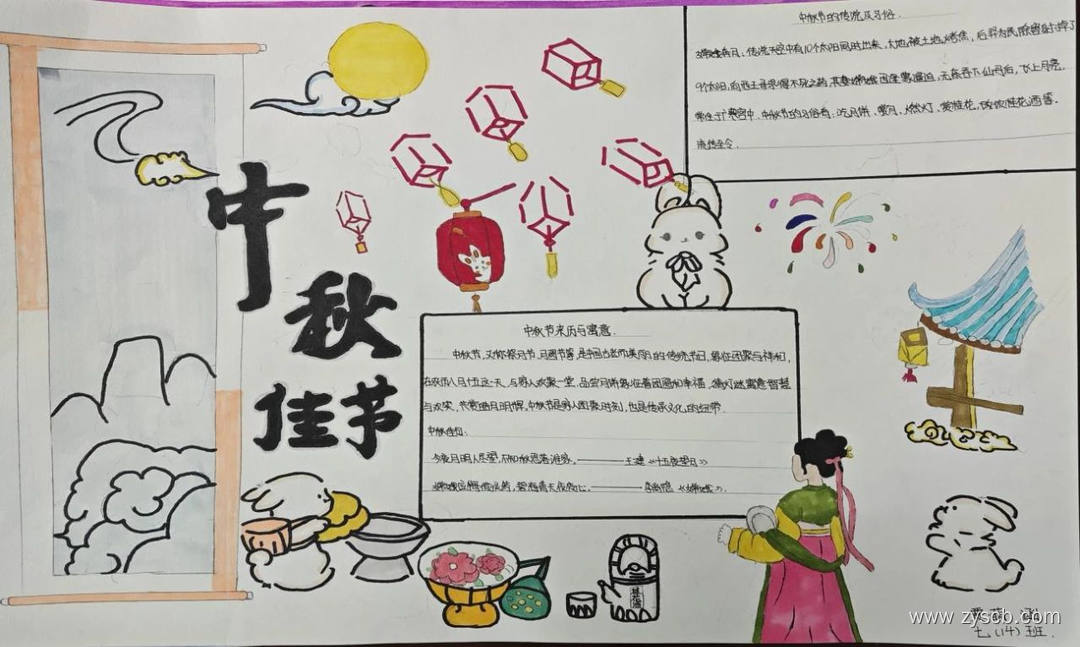 中秋节的传说及习俗.
嫦娥奔月：传说天空中有10个太阳同时出来，大地被土地烤焦，后羿为民除害射掉了
9个太阳，向西王母求得不死之药，其妻嫦娥因逢蒙逼迫，无奈吞下仙丹后，飞上月亮，
常住于广寒宫中. 中秋节的习俗有：吃月饼，赏月，燃灯，赏桂花，饮桂花酒等.
流传至今.
中秋佳节
中秋节来历与寓意.
中秋节，又称祭月节、月圆节等，是中国古老而美好的传统节日，象征团聚与祥和，
在农历八月十五这一天，与家人欢聚一堂，品尝月饼象征着团圆和幸福，猜灯谜寓意智慧
与欢乐，共赏皓月明辉，中秋节是家人团聚时刻，也是传承文化的纽带.
中秋诗句:
今夜月明人尽望，不知秋思落谁家. ——王建《十五夜望月》
嫦娥应悔偷灵药，碧海青天夜夜心. ——李商隐《嫦娥》.
七(14)班.
www.zyscb.com